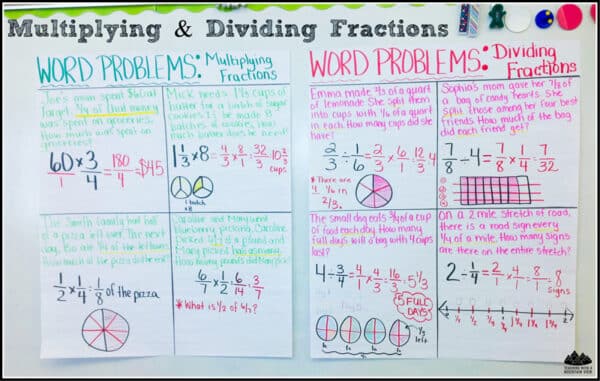 Multiplying & Dividing Fractions
WORD PROBLEMS: Multiplying
Fractions
Joe's mom spent $60 at
Target. 3/4 of that money
was spent on groceries.
How much was spent on
groceries?
60/1 x 3/4 = 180/4 = $45
Mick needs 1 1/3 cups of
butter for a batch of sugar
cookies. If he made 8
batches of cookies, how
much butter does he need?
1 1/3 x 8 = 4/3 x 8/1 = 32/3 = 10 2/3
cups
1 batch
x8
The Smith family had half
of a pizza left over. The next
day, Bo ate 1/4 of the leftovers.
How much of the pizza did he eat?
1/2 x 1/4 = 1/8 of the pizza
Caroline and Mary went
blueberry picking. Caroline
picked 6/7 of a pound and
Mary picked half as many.
How many pounds did Mary pick?
6/7 x 1/2 = 6/14 = 3/7
* What is 1/2 of 6/7?
WORD PROBLEMS: Dividing
Fractions
Emma made 2/3 of a quart
of lemonade. She split them
into cups with 1/6 of a quart
in each. How many cups did she
have?
2/3 ÷ 1/6 = 2/3 x 6/1 = 12/3 = 4
* There are
4 1/6 in
2/3.
Sophia's mom gave her 7/8 of
a bag of candy hearts. She
split those among her four best
friends. How much of the bag
did each friend get?
7/8 ÷ 4 = 7/8 x 1/4 = 7/32
The small dog eats 3/4 of a cup
of food each day. How many
full days will a bag with 4 cups
last?
4 ÷ 3/4 = 4/1 x 4/3 = 16/3 = 5 1/3
5 FULL
DAYS!
1/3
left
On a 2 mile stretch of road,
there is a road sign every
1/4 of a mile. How many signs
are there on the entire stretch?
2 ÷ 1/4 = 2/1 x 4/1 = 8/1 = 8
signs
TEACHING WITH A
MOUNTAIN VIEW